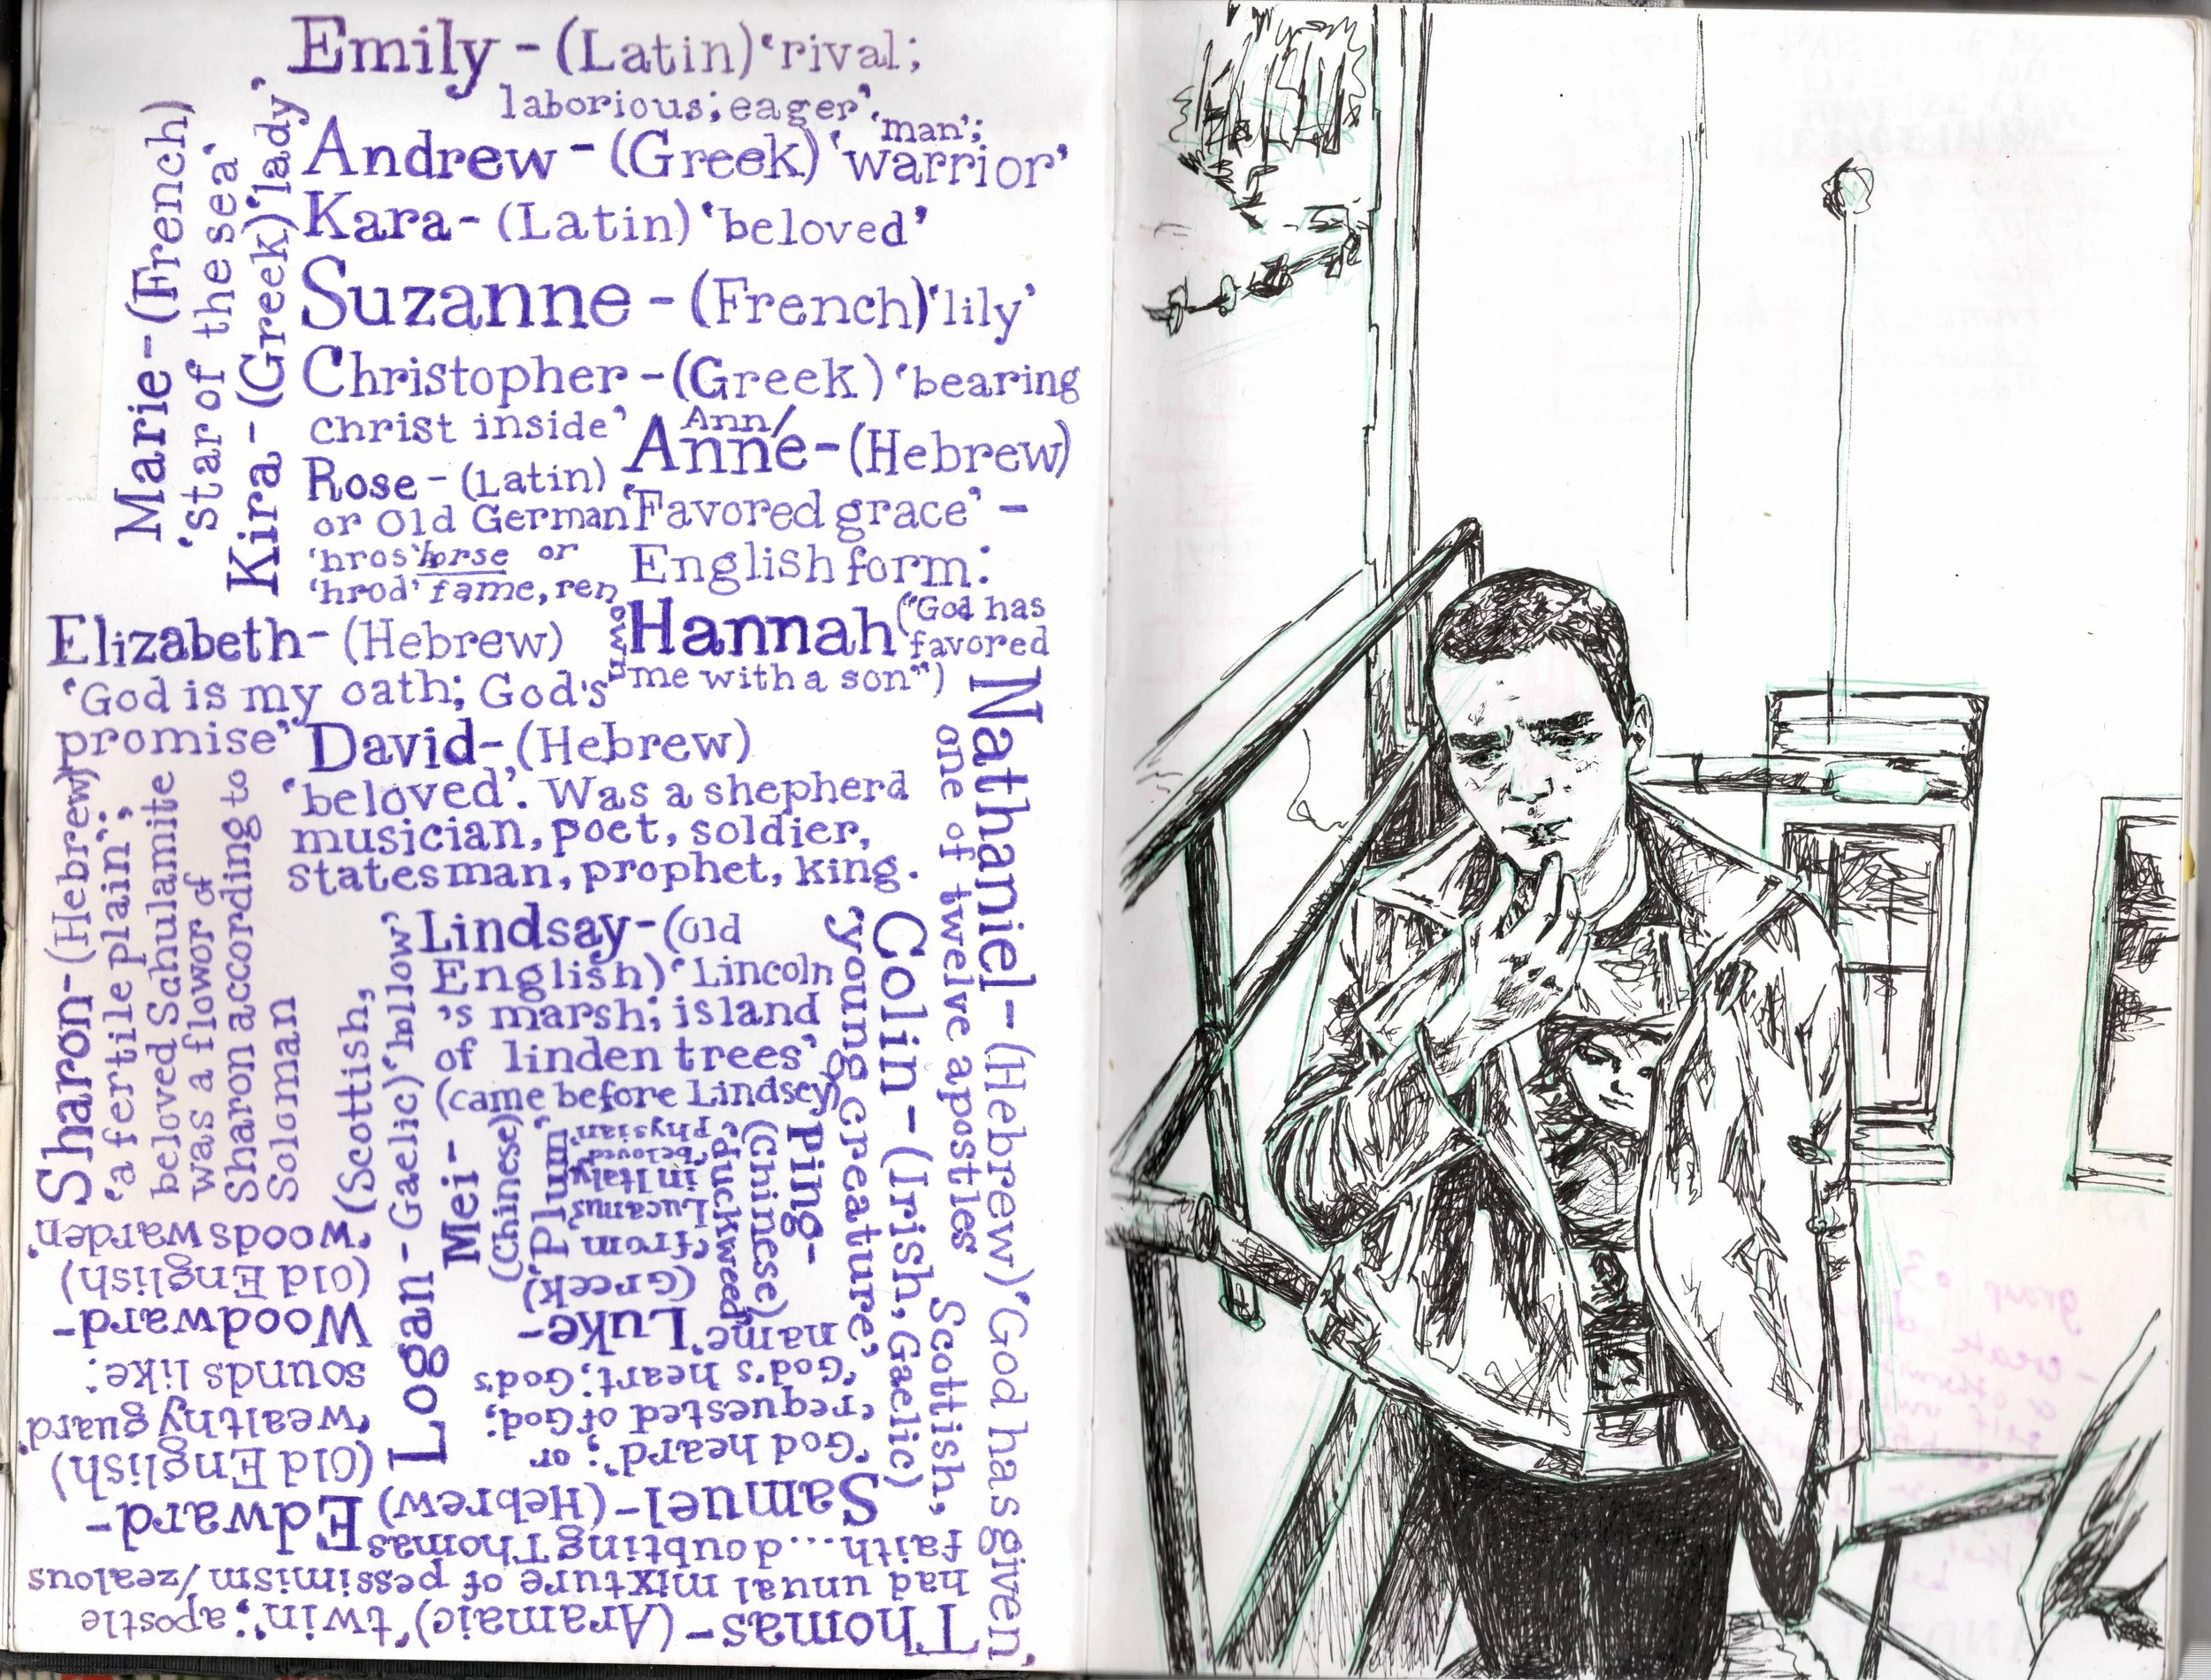 Emily - (Latin) 'rival;
laborious; eager'
Andrew - (Greek) 'man';
'warrior'
Kara - (Latin) 'beloved'
Suzanne - (French) 'lily'
Christopher - (Greek) 'bearing
christ inside'
Ann/
Anne - (Hebrew)
'Favored grace' -
English form:
Hannah ("God has
favored
me with a son")
Rose - (Latin)
or Old German
'hros' horse or
'hrod' fame, ren
own
Marie - (French)
'star of the sea'
Kira - (Greek) 'lady'
Elizabeth - (Hebrew)
'God is my oath; God's
promise'
David - (Hebrew)
'beloved'. Was a shepherd
musician, poet, soldier,
statesman, prophet, king.
Nathaniel - (Hebrew) 'God has given'
one of twelve apostles
Colin - (Irish, Gaelic)
Scottish,
'young creature'
Lindsay - (Old
English) 'Lincoln
's marsh; island
of linden trees'
(came before Lindsey)
Sharon - (Hebrew)
'a fertile plain';
beloved Sahulamite
was a flowor of
Sharon according to
Soloman
Logan - Gaelic) 'hllow'
(Scottish,
Mei -
(Chinese)
'Plum'
Ping -
(Chinese)
'duckweed'
Luke -
(Greek)
'from
Lucanus
in Italy'
'beloved
physian'
Thomas - (Aramaic) 'twin'; apostle
had unual mixture of pessimism/zealous
faith... doubting Thomas
Samuel - (Hebrew)
'God heard'; or
'requested of God;
'God's heart; God's
name'
Edward -
(Old English)
'wealthy guard'
sounds like:
Woodward -
(Old English)
'woodswarden'